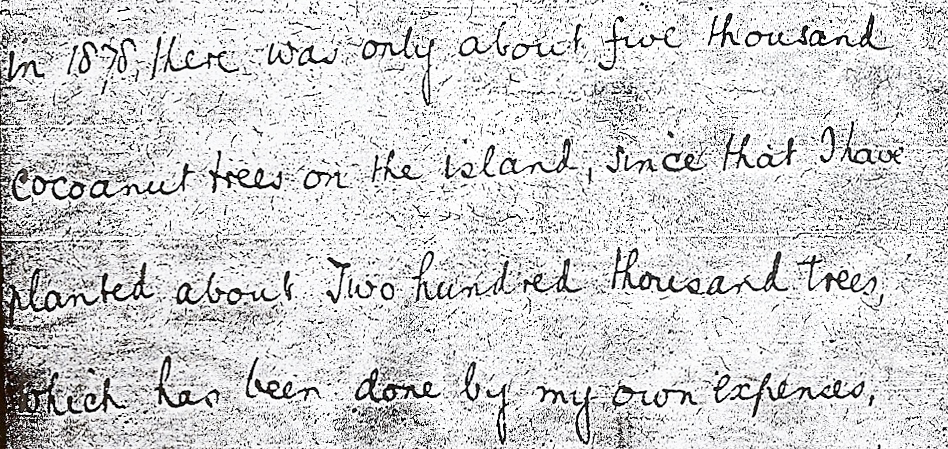 In 1878, there was only about five thousand
cocoanut trees on the island, since that I have
planted about Two hundred thousand trees,
which has been done by my own expenses,